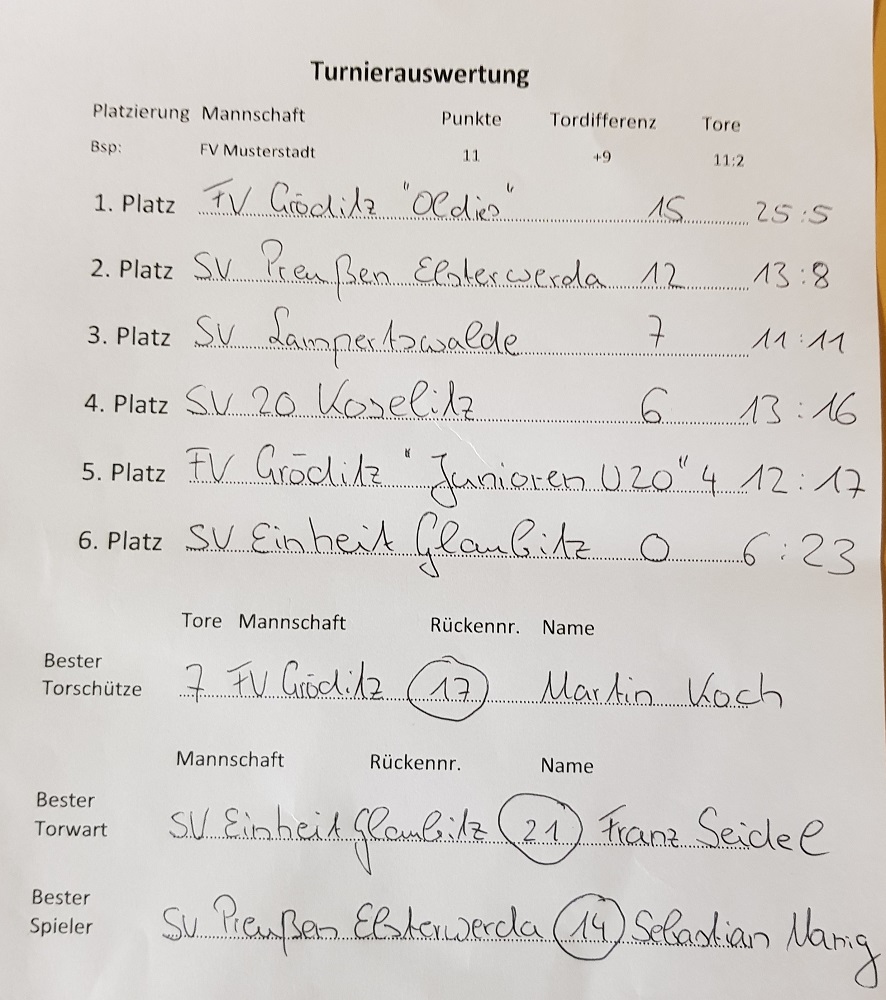 Turnierauswertung
Platzierung Mannschaft Punkte Tordifferenz Tore
Bsp: FV Musterstadt 11 +9 11:2
1. Platz FV Gröditz "Oldies" 15 25:5
2. Platz SV Preußen Elsterwerda 12 13:8
3. Platz SV Lampertswalde 7 11:11
4. Platz SV 20 Koselitz 6 13:16
5. Platz FV Gröditz "Junioren U20" 4 12:17
6. Platz SV Einheit Glaubitz 0 6:23
Tore Mannschaft Rückennr. Name
Bester
Torschütze 7 FV Gröditz 17 Martin Koch
Mannschaft Rückennr. Name
Bester
Torwart SV Einheit Glaubitz 21 Franz Seidel
Bester
Spieler SV Preußen Elsterwerda 14 Sebastian Manig